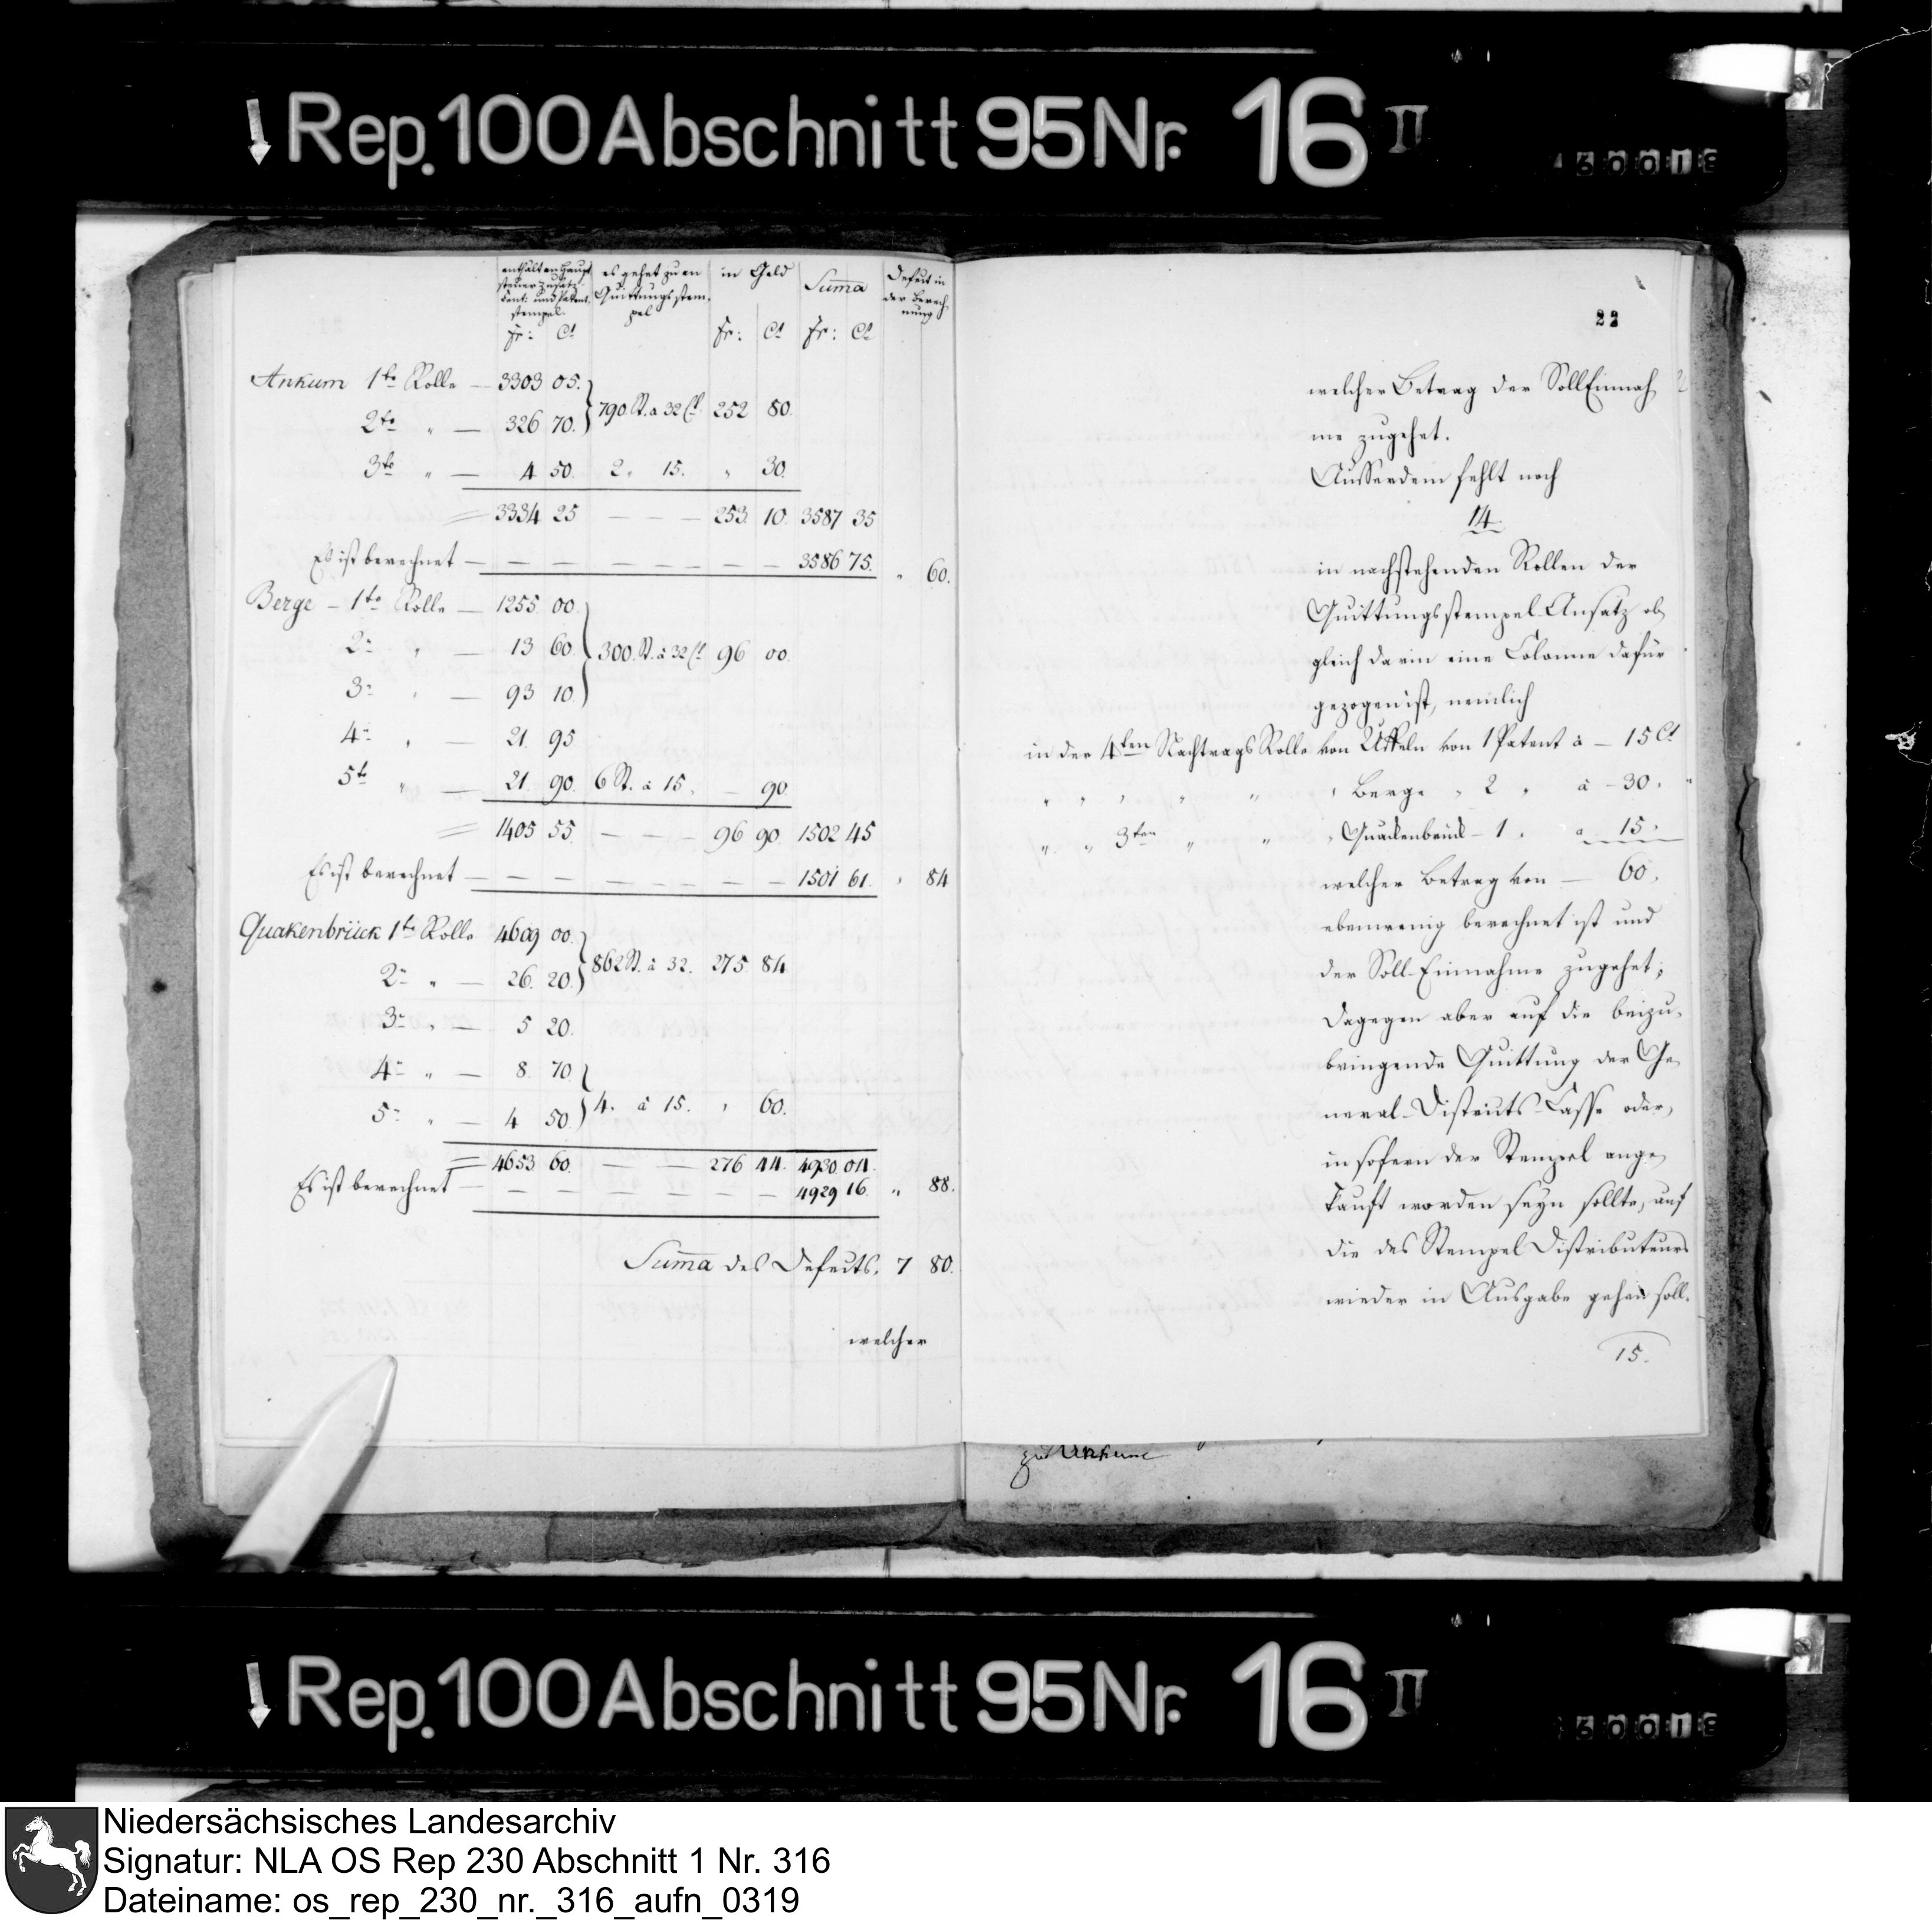 Rep. 100 Abschnitt 95 Nr. 16 II
enthält an Haupt
steuer zusatz
Cent: und Patent
stempel.
Fr: Ct
es gehet zu an
Quittungsstem,
pel
in Geld
Fr: Ct
Summa
Fr: Ct
Defect in
der Berech,
nung
Ankum 1te Rolle — 3303 05.
2te " — 326 70. } 790. St. a 32 Ct. 252 80.
3te " — 4 50. 2. 15. " 30.
3334 25 — — — 253. 10. 3587 35
Es ist berechnet — — — — — — — — 3586 75. " 60.
Berge — 1te Rolle — 1255 00.
2- " — 13 60. } 300. St. à 32 Ct. 96 00.
3- " — 93 10.
4- " — 21. 95
5te " — 21. 90. 6 St. à 15. — 90.
1405 55 — — — 96 90. 1502 45
Es ist berechnet — — — — — — — — 1501 61. " 84
Quakenbrück 1te Rolle 4609 00.
2- " — 26. 20. } 862 St. à 32. 275. 84
3- " — 5 20.
4- " — 8. 70.
5- " — 4 50. } 4. à 15. " 60.
4653 60. — — 276 44. 4930. 04.
Es ist berechnet — — — — — — — 4929 16. " 88.
Summa des Defects. 7 80.
welcher
22
welcher Betrag der Soll Einnah,
me zugehet.
Ausserdem fehlt noch
14.
in nachstehenden Rollen der
Quittungsstempel-Ansatz ob,
gleich darin eine Colonne dafür
gezogen ist, nemlich
in der 4ten Nachtrags Rolle von Uffeln von 1 Patent à — 15 Ct
" " " " " " Berge " 2 " à — 30 "
" " 3ten " " " Quackenbrück — 1 " a 15 "
welcher Betrag von — 60 "
ebenwenig berechnet ist und
der Soll-Einnahme zugehet;
dagegen aber auf die beizu,
bringende Quittung der Ge,
neral-Districts-Casse oder,
in sofern der Stempel ange,
kauft worden seyn sollte, auf
die des Stempel Distributeurs
wieder in Ausgabe gehen soll.
15.
zu Ankum
Rep. 100 Abschnitt 95 Nr. 16 II
Niedersächsisches Landesarchiv
Signatur: NLA OS Rep 230 Abschnitt 1 Nr. 316
Dateiname: os_rep_230_nr._316_aufn_0319